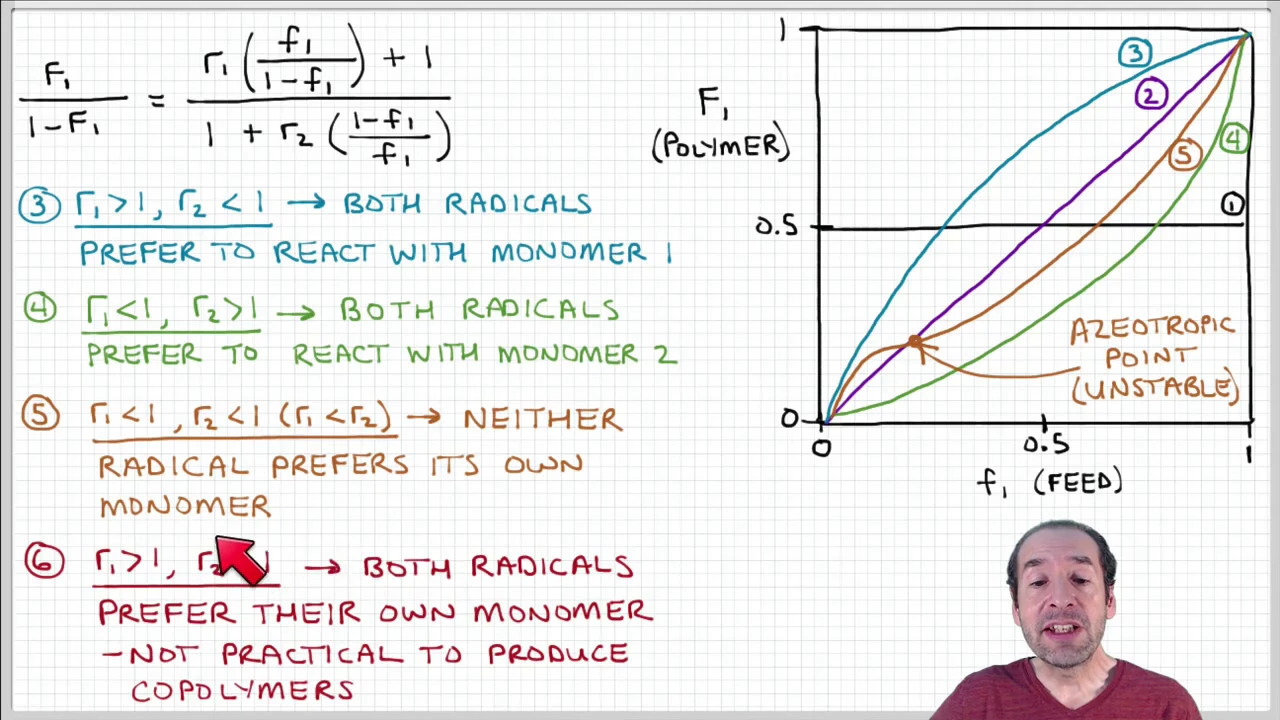 F₁ / (1 - F₁) = (r₁ (f₁ / (1 - f₁)) + 1) / (1 + r₂ ((1 - f₁) / f₁))
③ r₁ > 1, r₂ < 1 → BOTH RADICALS
PREFER TO REACT WITH MONOMER 1
④ r₁ < 1, r₂ > 1 → BOTH RADICALS
PREFER TO REACT WITH MONOMER 2
⑤ r₁ < 1, r₂ < 1 (r₁ < r₂) → NEITHER
RADICAL PREFERS ITS OWN
MONOMER
⑥ r₁ > 1, r₂ 1 → BOTH RADICALS
PREFER THEIR OWN MONOMER
- NOT PRACTICAL TO PRODUCE
COPOLYMERS
1
F₁
(POLYMER)
0.5
0
③
②
⑤
④
①
AZEOTROPIC
POINT
(UNSTABLE)
0
0.5
1
f₁ (FEED)